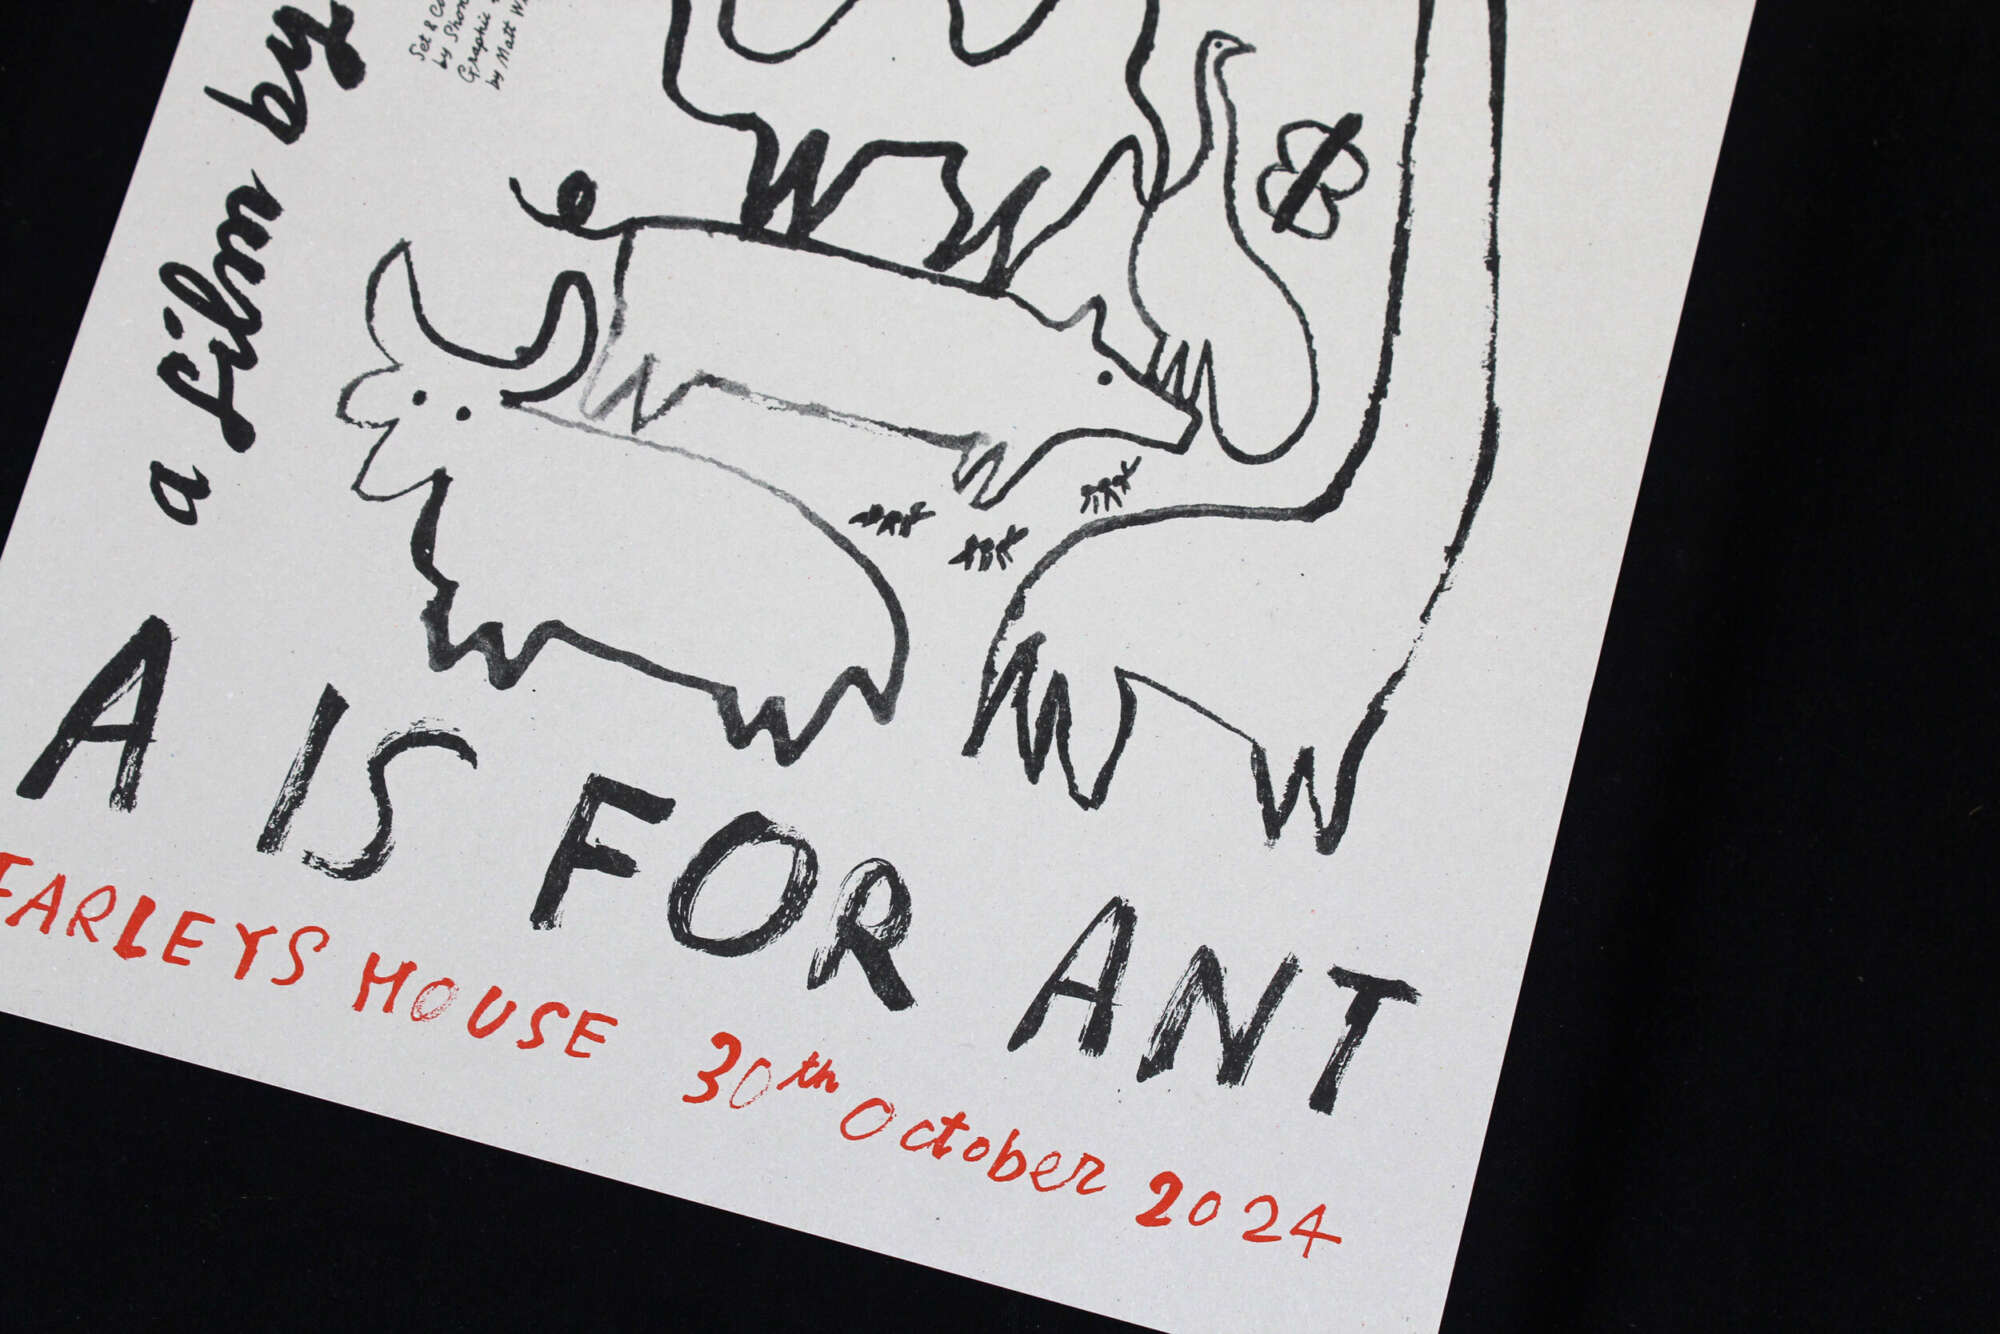 a film by
Set &
by
Graphic
by Matt
A IS FOR ANT
FARLEYS HOUSE 30th October 2024